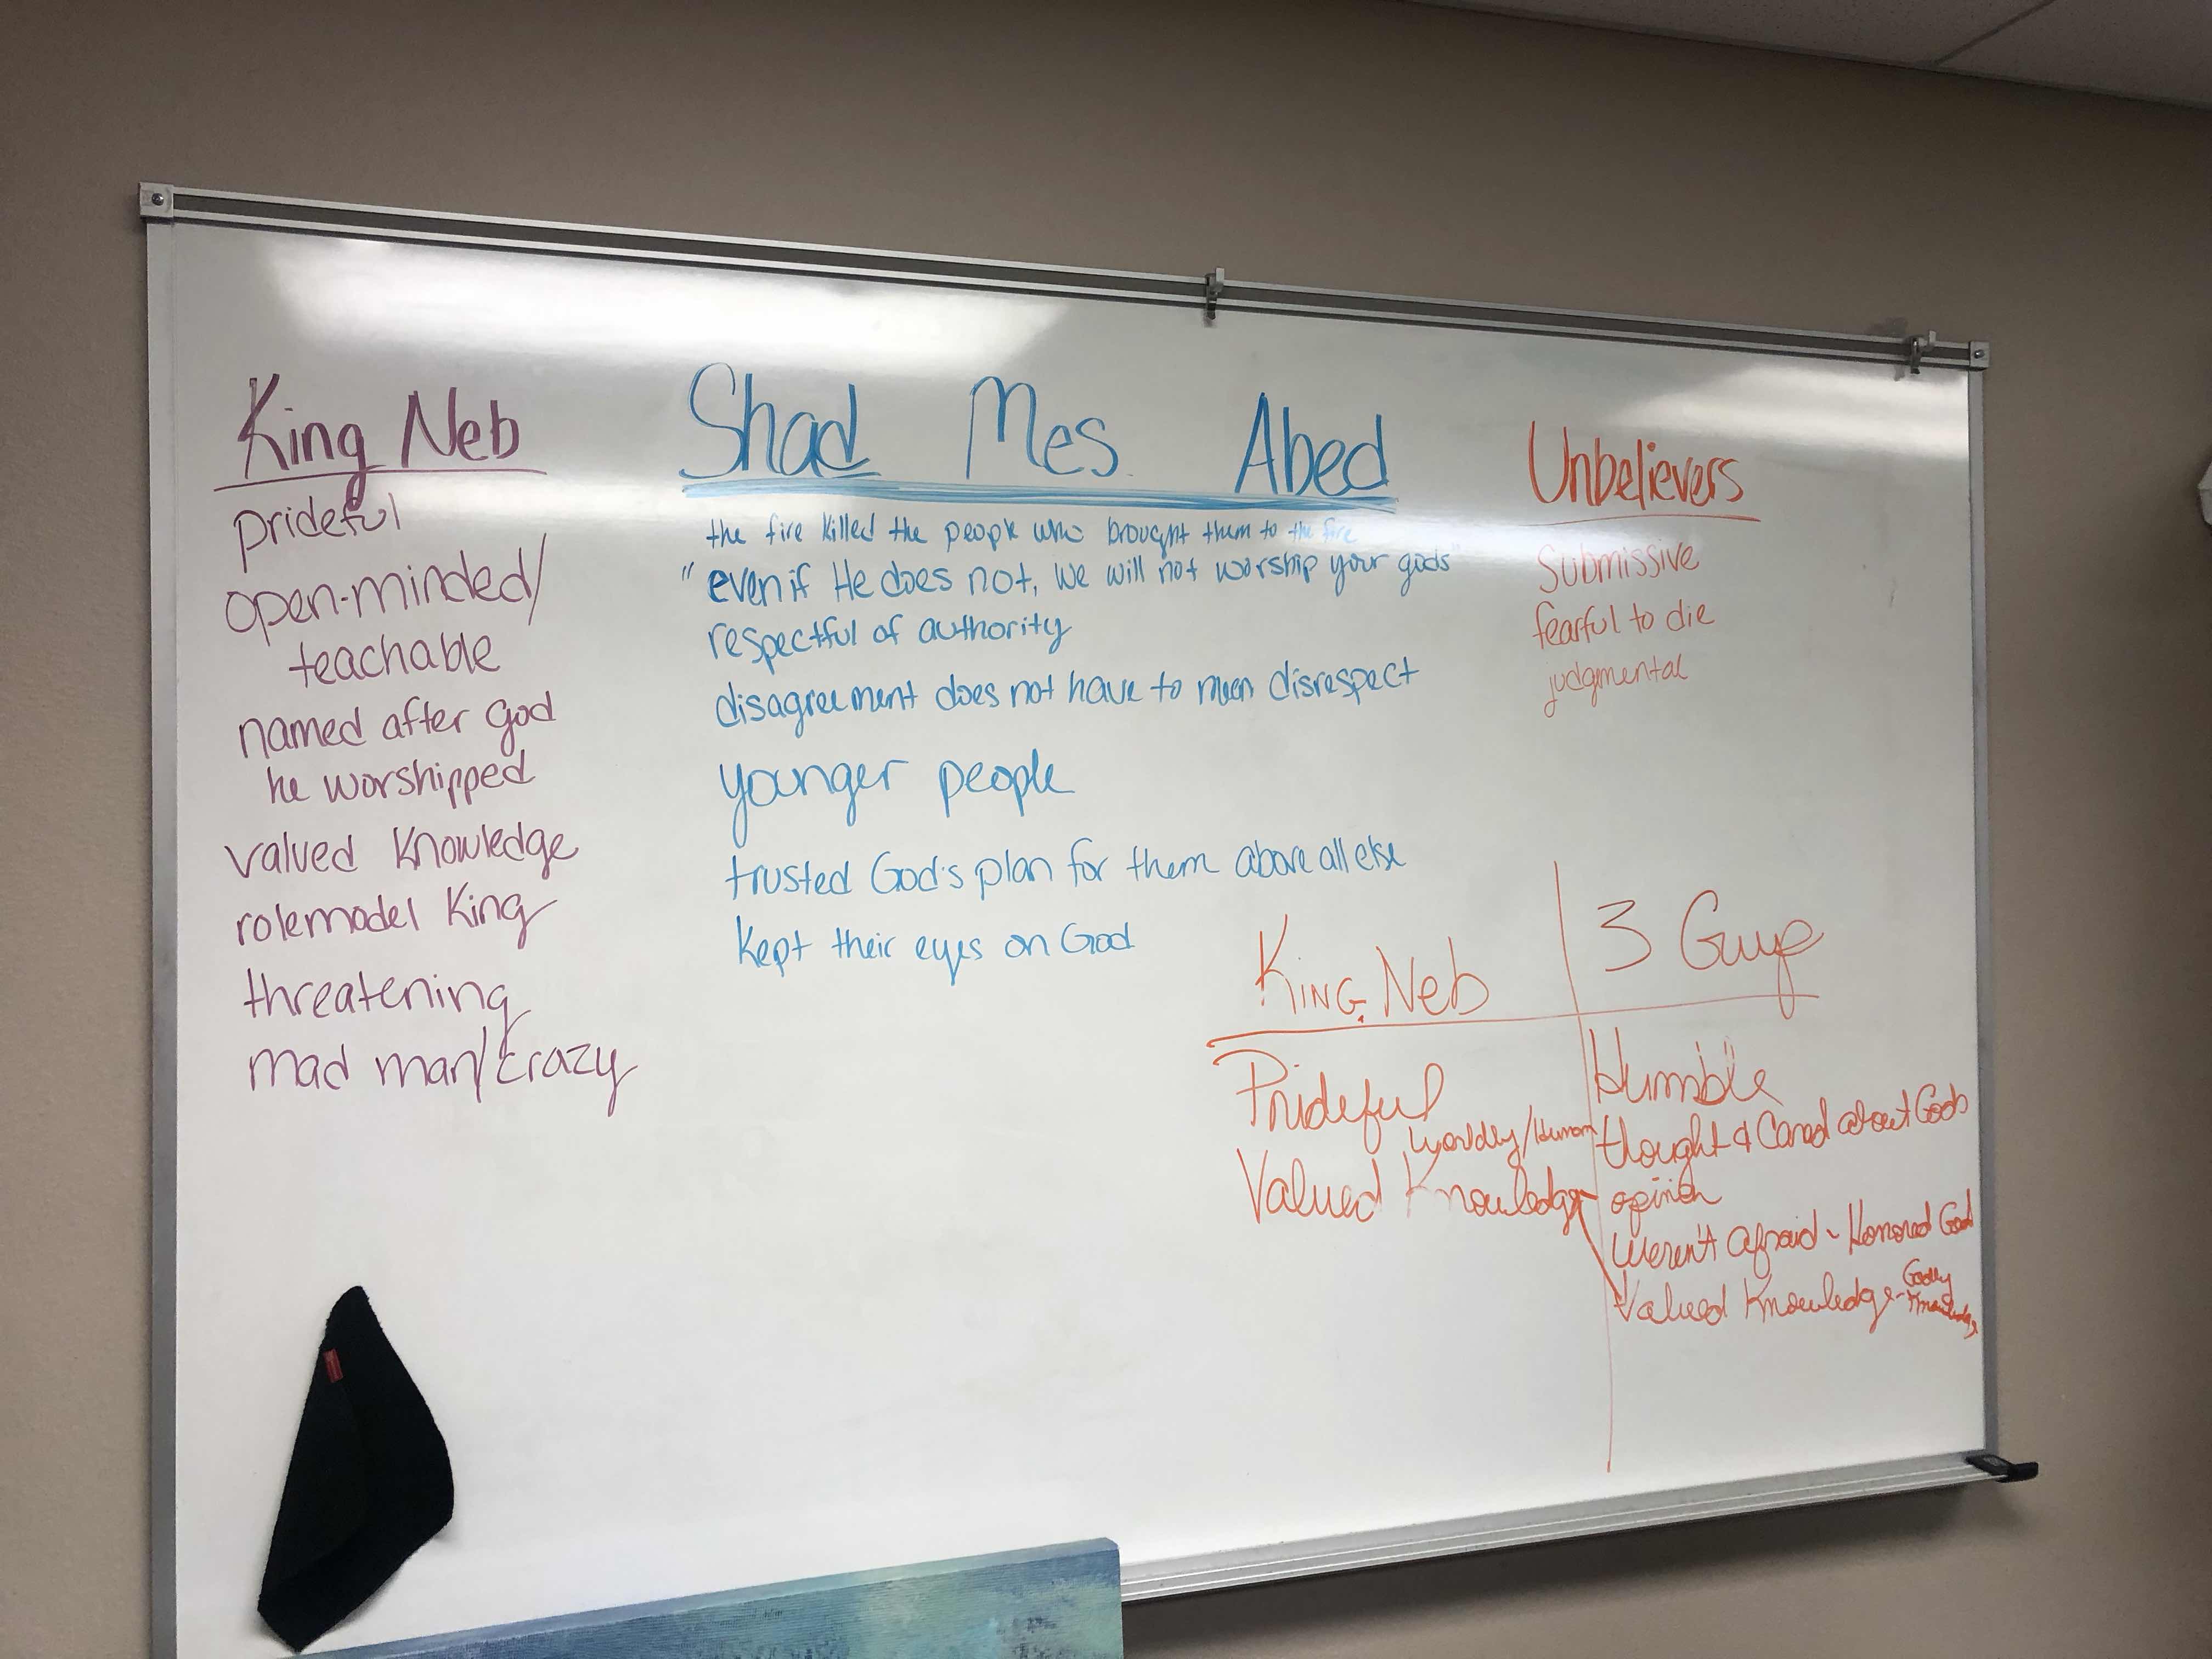 King Neb
prideful
open-minded/
teachable
named after god
he worshipped
valued knowledge
rolemodel King
threatening
mad man/crazy
Shad Mes. Abed
the fire killed the people who brought them to the fire
"even if He does not, we will not worship your gods"
respectful of authority
disagreement does not have to mean disrespect
younger people
trusted God's plan for them above all else
kept their eyes on God
Unbelievers
Submissive
fearful to die
judgmental
King Neb
Prideful
Worldly/Human
Valued Knowledge
3 Guys
Humble
thought & Cared about Gods
opinion
Weren't Afraid - Honored God
Valued Knowledge - Godly
Knowledge